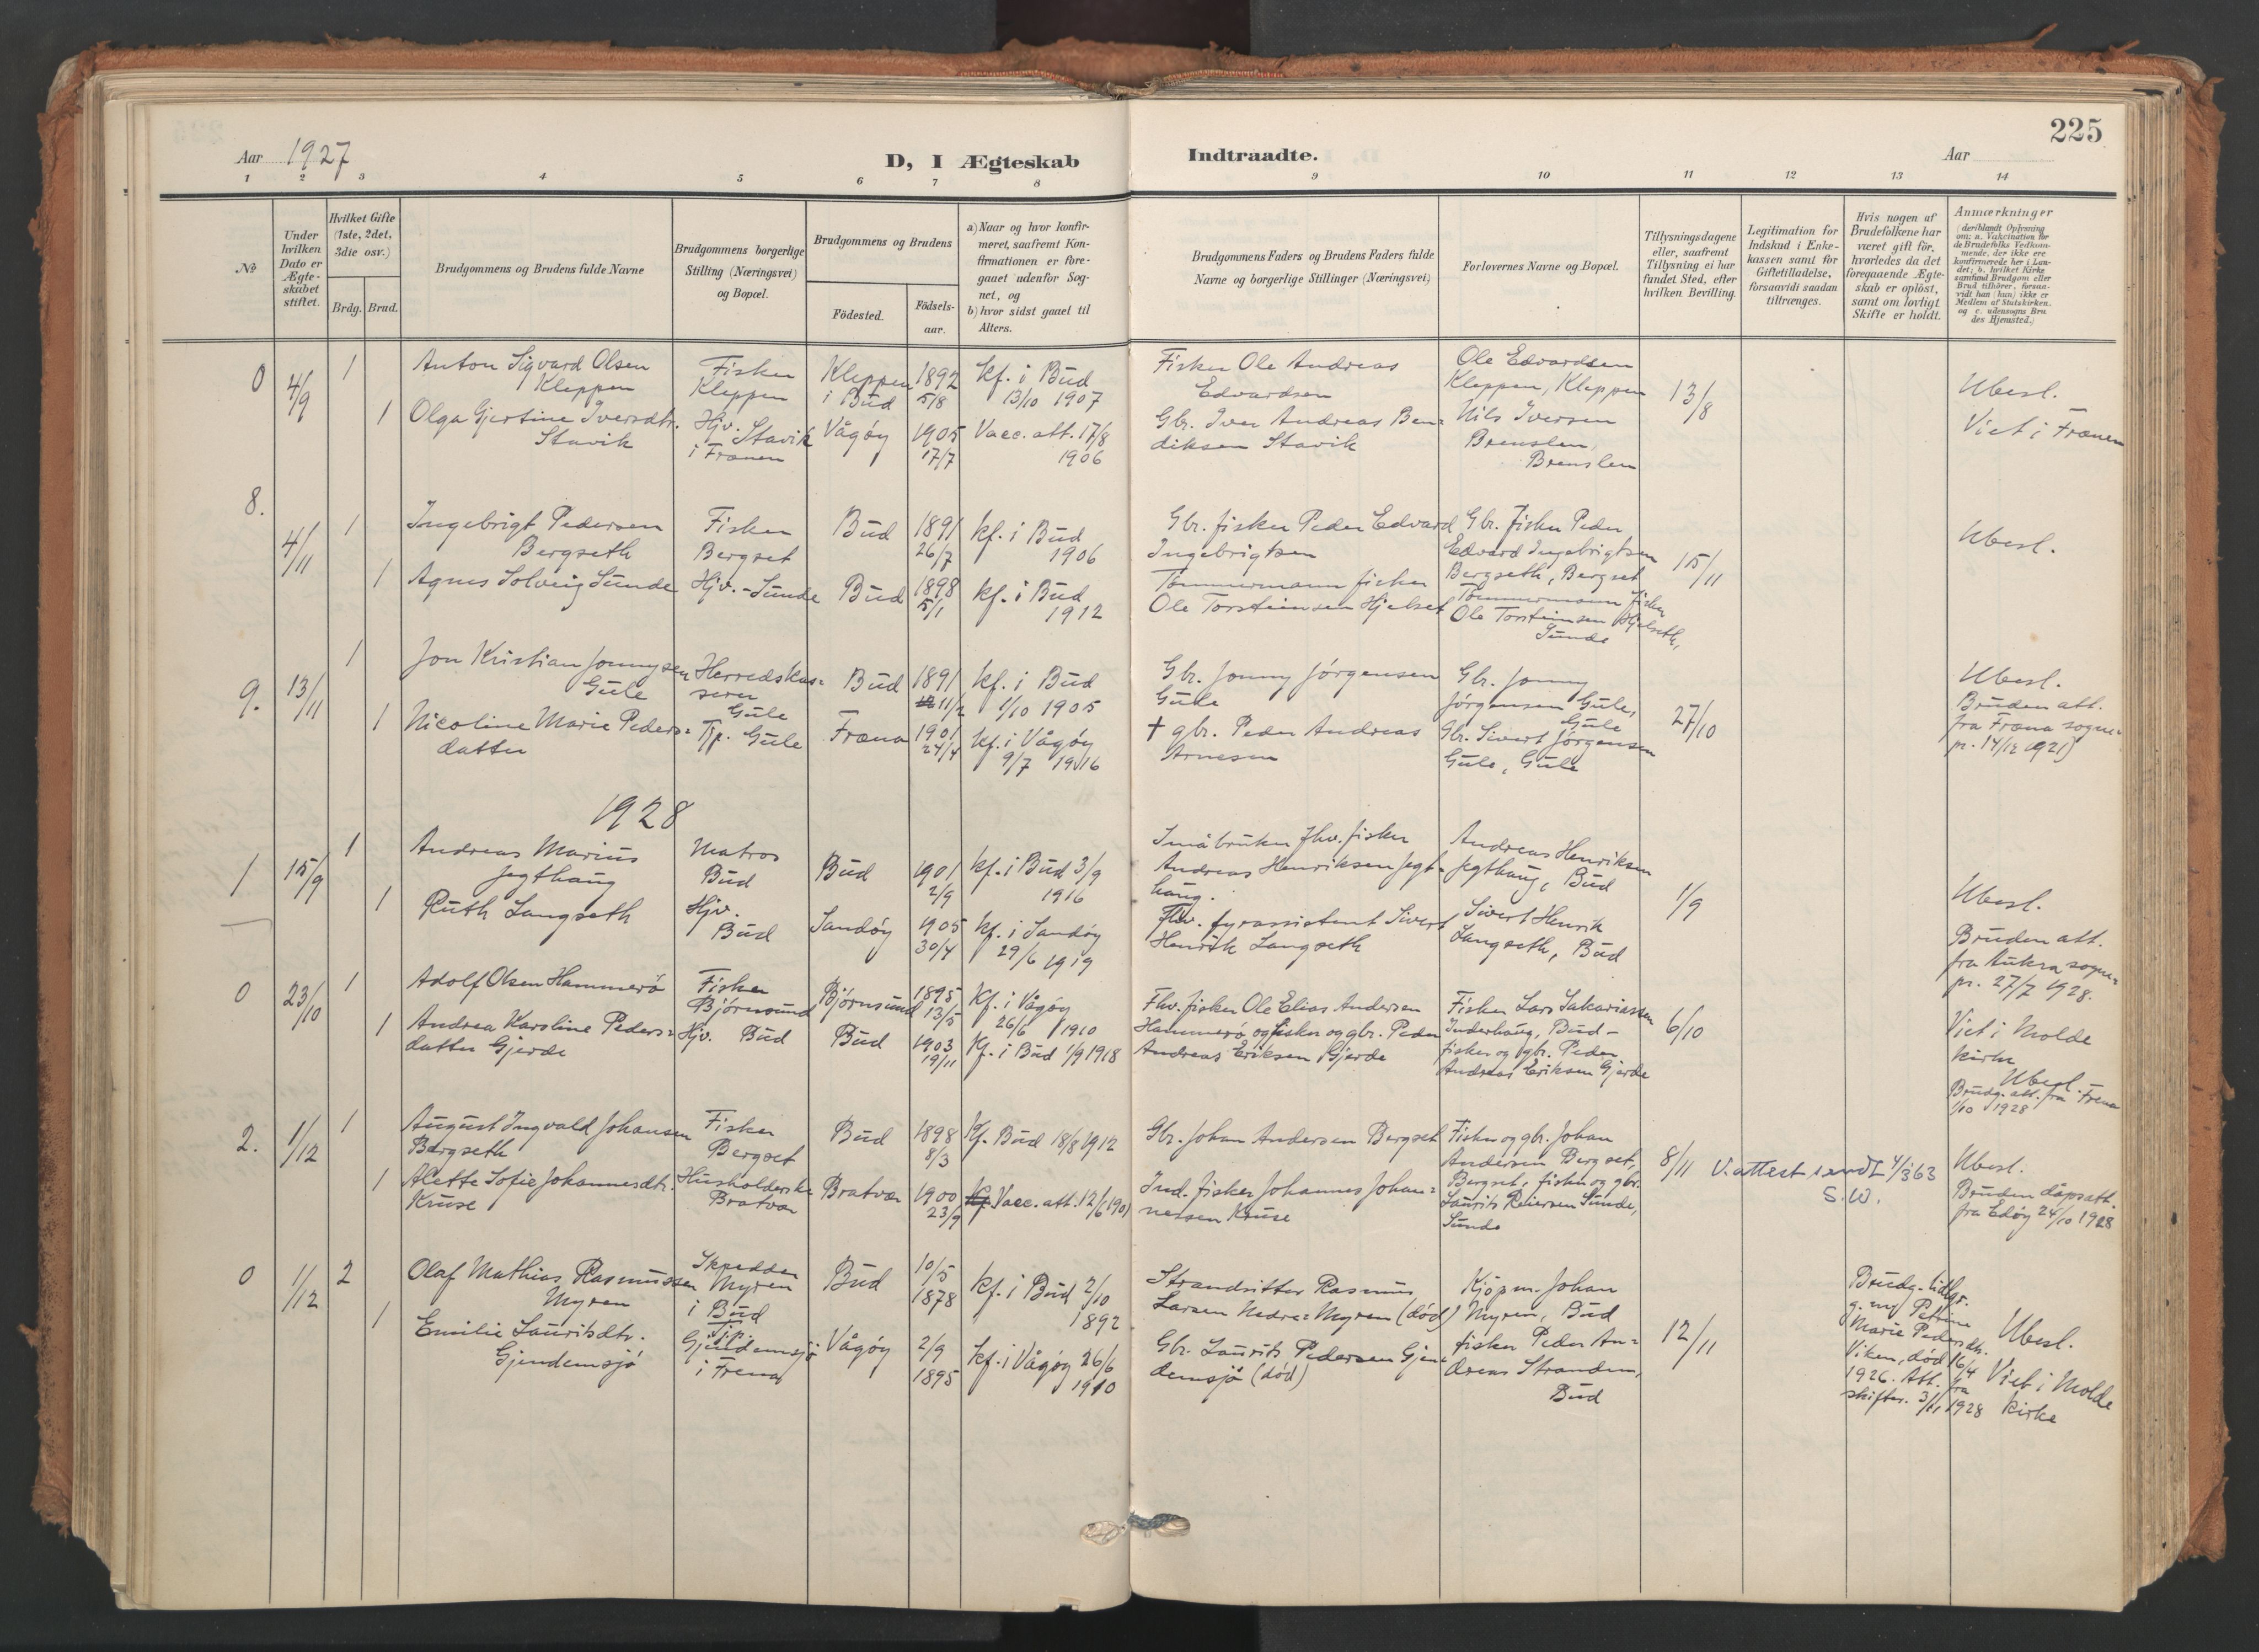 225
Aar 1927
D, I Ægteskab
Indtraadte.
Aar
1 2 3 4 5 6 7 8 9 10 11 12 13 14
No
Under hvilken Dato er Ægteskabet stiftet.
Hvilket Gifte (1ste, 2det, 3die osv.)
Brdg. Brud.
Brudgommens og Brudens fulde Navne
Brudgommens borgerlige Stilling (Næringsvei) og Bopæl.
Brudgommens og Brudens
Fødested.
Fødsels-aar.
a) Naar og hvor konfir-
meret, saafremt Kon-
firmationen er fore-
gaaet udenfor Sog-
net, og
b) hvor sidst gaaet til
Alters.
Brudgommens Faders og Brudens Faders fulde
Navne og borgerlige Stillinger (Næringsvei)
Forlovernes Navne og Bopæl.
Tillysningsdagene
eller, saafremt
Tillysning ei har
fundet Sted, efter
hvilken Bevilling.
Legitimation for
Indskud i Enke-
kassen samt for
Giftetilladelse,
forsaavidt saadan
tiltrænges.
Hvis nogen af
Brudefolkene har
været gift før,
hvorledes da det
foregaaende Ægte-
skab er opløst,
samt om lovligt
Skifte er holdt.
Anmærkninger
(deriblandt Oplysning
om: a. Vakcination for
de Brudefolks Vedkom-
mende, der ikke ere
konfirmerede her i Lan-
det; b. hvilket Kirke
samfund Brudgom eller
Brud tilhører, forsaa-
vidt han (hun) ikke er
Medlem af Statskirken.
og c. udensogns Bru
des Hjemsted.)
0
4/9
1
Anton Sigvard Olsen
Kleppen
Fisker
Kleppen
Kleppen
i Bud
1892
5/8
kf. i Bud
13/10 1907
Fisker Ole Andreas
Edvardsen
Ole Edvardsen
Kleppen, Kleppen
13/8
Ubesl.
1
Olga Gjertine Iversdtr.
Stavik
Hjv. Stavik
i Frænen
Vågøy
1905
17/7
Vacc. att. 17/8
1906
Gbr. Iver Andreas Ben=
diksen Stavik
Nils Iversen
Brenslen,
Brenslen
Viet i Frænen
8.
4/11
1
Ingebrigt Pedersen
Bergseth
Fisker
Bergset
Bud
1891
26/7
kf. i Bud
1906
Gbr. fisker Peder Edvard
Ingebrigtsen
Gbr. Fisker Peder
Edvard Ingebrigtsen
Bergseth, Bergset
15/11
Ubesl.
1
Agnes Solveig Sunde
Hjv. - Sunde
Bud
1898
5/1
kf. i Bud
1912
Tømmermann fisker
Ole Torsteinsen Hjelset
Tømmermann fisker
Ole Torsteinsen Hjelseth,
Sunde
9.
13/11
1
Jon Kristian Jonnysen
Gule
Herredskas=
serer
Gule
Bud
1891
11/2
kf. i Bud
1/10 1905
Gbr. Jonny Jørgensen
Gule
Gbr. Jonny
Jørgensen Gule,
Gule
27/10
Ubesl.
1
Nicoline Marie Peders=
datter
Tjp. Gule
Fræna
1901
24/4
kf. i Vågøy
9/7 1916
† gbr. Peder Andreas
Arnesen
Gbr. Sivert Jørgensen
Gule, Gule
Bruden att.
fra Fræna sogne=
pr. 14/12 1921)
1928
1
15/9
1
Andreas Marius
Jegthaug
Matros
Bud
Bud
1901
2/9
kf. i Bud 3/9
1916
Småbruker fhv. fisker
Andreas Henriksen Jegt-
haug.
Andreas Henriksen
Jegthaug, Bud
1/9
Ubesl.
1
Ruth Langseth
Hjv.
Bud
Sandøy
1905
30/4
kf. i Sandøy
29/6 1919
Fhv. fyrassistent Sivert
Henrik Langseth
Sivert Henrik
Langseth, Bud
Bruden att.
fra Aukra sogne=
pr. 27/7 1928.
0
23/10
1
Adolf Olsen Hammerø
Fisker
Bjørnsund
Bjørnsund
1895
13/5
Kf. i Vågøy
26/6 1910
Fhv. fisker Ole Elias Andersen
Hammerø og fisker og gbr. Peder
Andreas Eriksen Gjerde
Fisker Lars Sakariassen
Inderhaug, Bud -
fisker og gbr. Peder
Andreas Eriksen Gjerde
6/10
Viet i Molde
kirke
Ubesl.
Brudg. att. fra Fræna
1/10 1928
1
Andrea Karoline Peders=
datter Gjerde
Hjv. Bud
Bud
1903
19/11
Kf. i Bud 1/9 1918
2.
1/12
1
August Ingvald Johansen
Bergseth
Fisker
Bergset
Bud
1898
8/3
Kf. Bud 18/8 1912
Gbr. Johan Andersen Bergset
Fisker og gbr. Johan
Andersen Bergset,
Bergset, fisker og gbr.
Laurits Reiersen Sunde,
Sunde
8/11
V. attest sendt 4/3 63
S.W.
Ubesl.
Bruden dåpsatt.
fra Edøy 24/10 1928
1
Alette Sofie Johannesdtr.
Kruse
Husholderske
Bratvær
Bratvær
1900
23/9
Vacc. att. 12/6 1901
Ind. fisker Johannes Johan=
nessen Kruse
0
1/12
2
Olaf Mathias Rasmussen
Myren
Skredder
Myren
i Bud
Bud
10/5
1878
kf. i Bud 2/10
1892
Strandsitter Rasmus
Larsen Nedre=Myren (død)
Kjøpm. Johan
Myren, Bud
12/11
Brudg. tidlgr.
g. m/ Petrine
Marie Pedersdtr.
Viken, død 16/4
1926. Att. fra
skifter. 3/11 1928
Ubesl.
Viet i Molde
kirke
1
Emilie Lauritsdtr.
Gjendemsjø
Tjp.
Gjendemsjø
i Frena
Vågøy
2/9
1895
kf. i Vågøy 26/6
1910
Gbr. Laurits Pedersen Gjen=
demsjø (død)
fisker Peder An=
dreas Stranden,
Bud